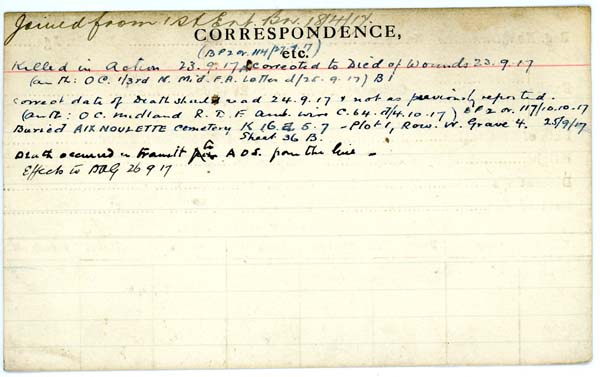 Joined from 1st Ent. Bn. 18/4/17.
CORRESPONDENCE,
etc.
(BP2 or. 114/27.9.17)
Killed in Action 23.9.17, corrected to Died of Wounds 23.9.17
(auth: O.C. 1/3rd N. Mid. F.A. Letter d/25.9.17) B)
Correct date of Death should read 24.9.17 & not as previously reported.
(auth: O.C. Midland R.D.F. Amb. wire C.64. d/4.10.17) BP2 or. 117/10.10.17
Buried AIX NOULETTE Cemetery K 16. 5.7 - Plot 1, Row. W. Grave 4. 25/9/17
Sheet 36 B.
Death occurred in transit to A D S. from the line -
Effects to DAG 26 9 17